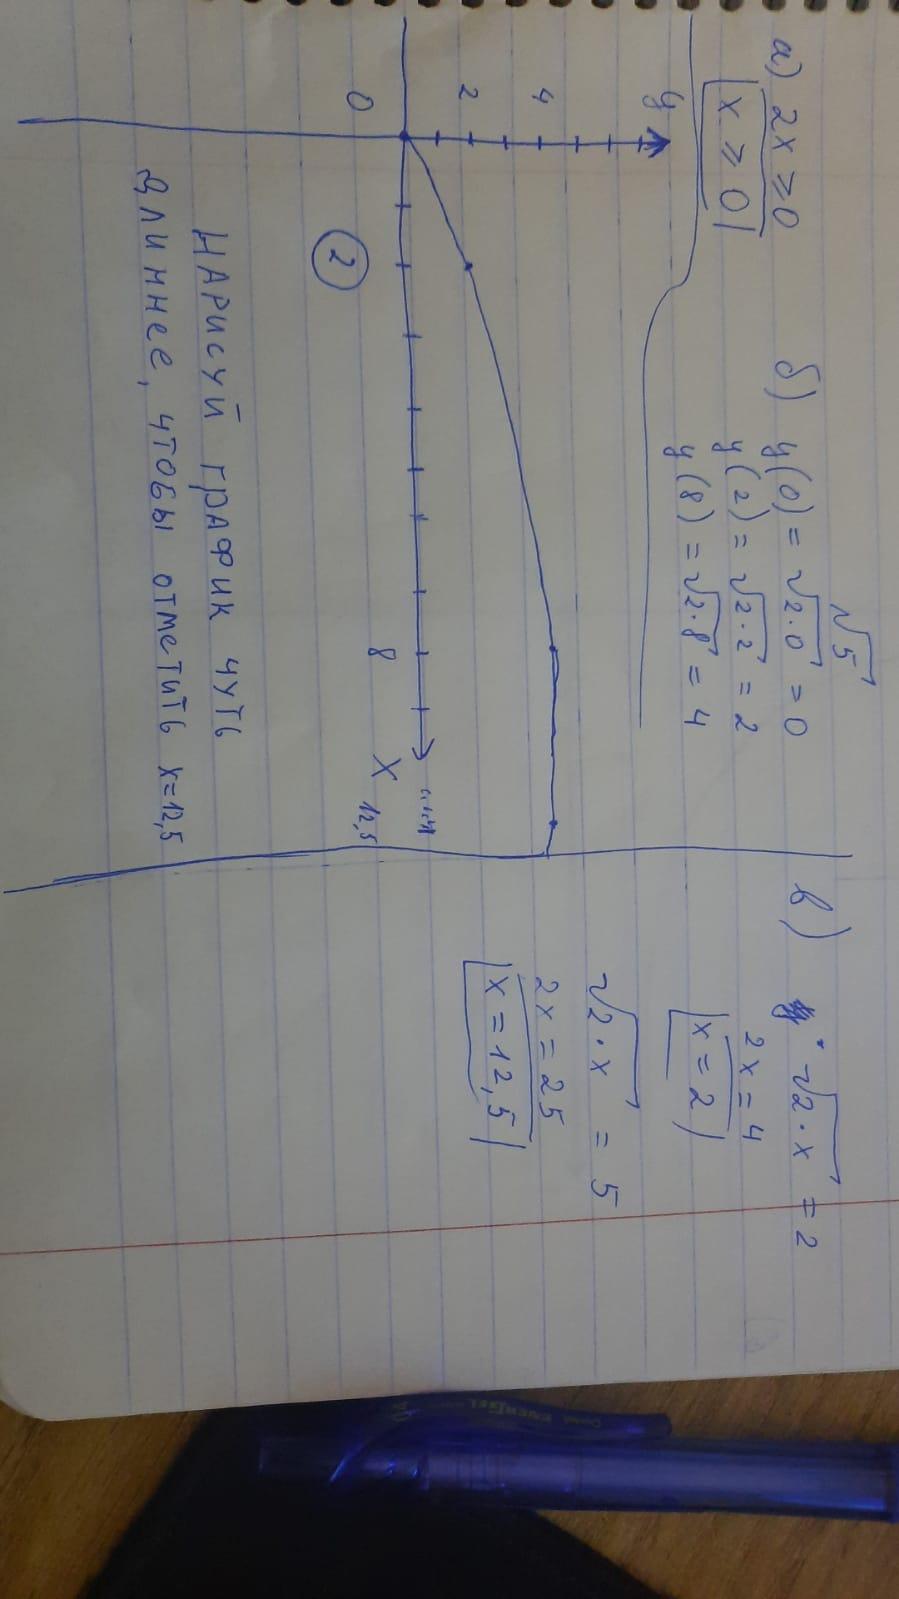 а) 2x ≥ 0
x ≥ 0
√5
б) y(0) = √2·0 = 0
y(2) = √2·2 = 2
y(8) = √2·8 = 4
y
4
2
0
2
8
X
12,5
НАРИСУЙ ГРАФИК ЧУТЬ
ДЛИННЕЕ, ЧТОБЫ ОТМЕТИТЬ x=12,5
в) √2·x = 2
2x = 4
x = 2
√2·x = 5
2x = 25
x = 12,5